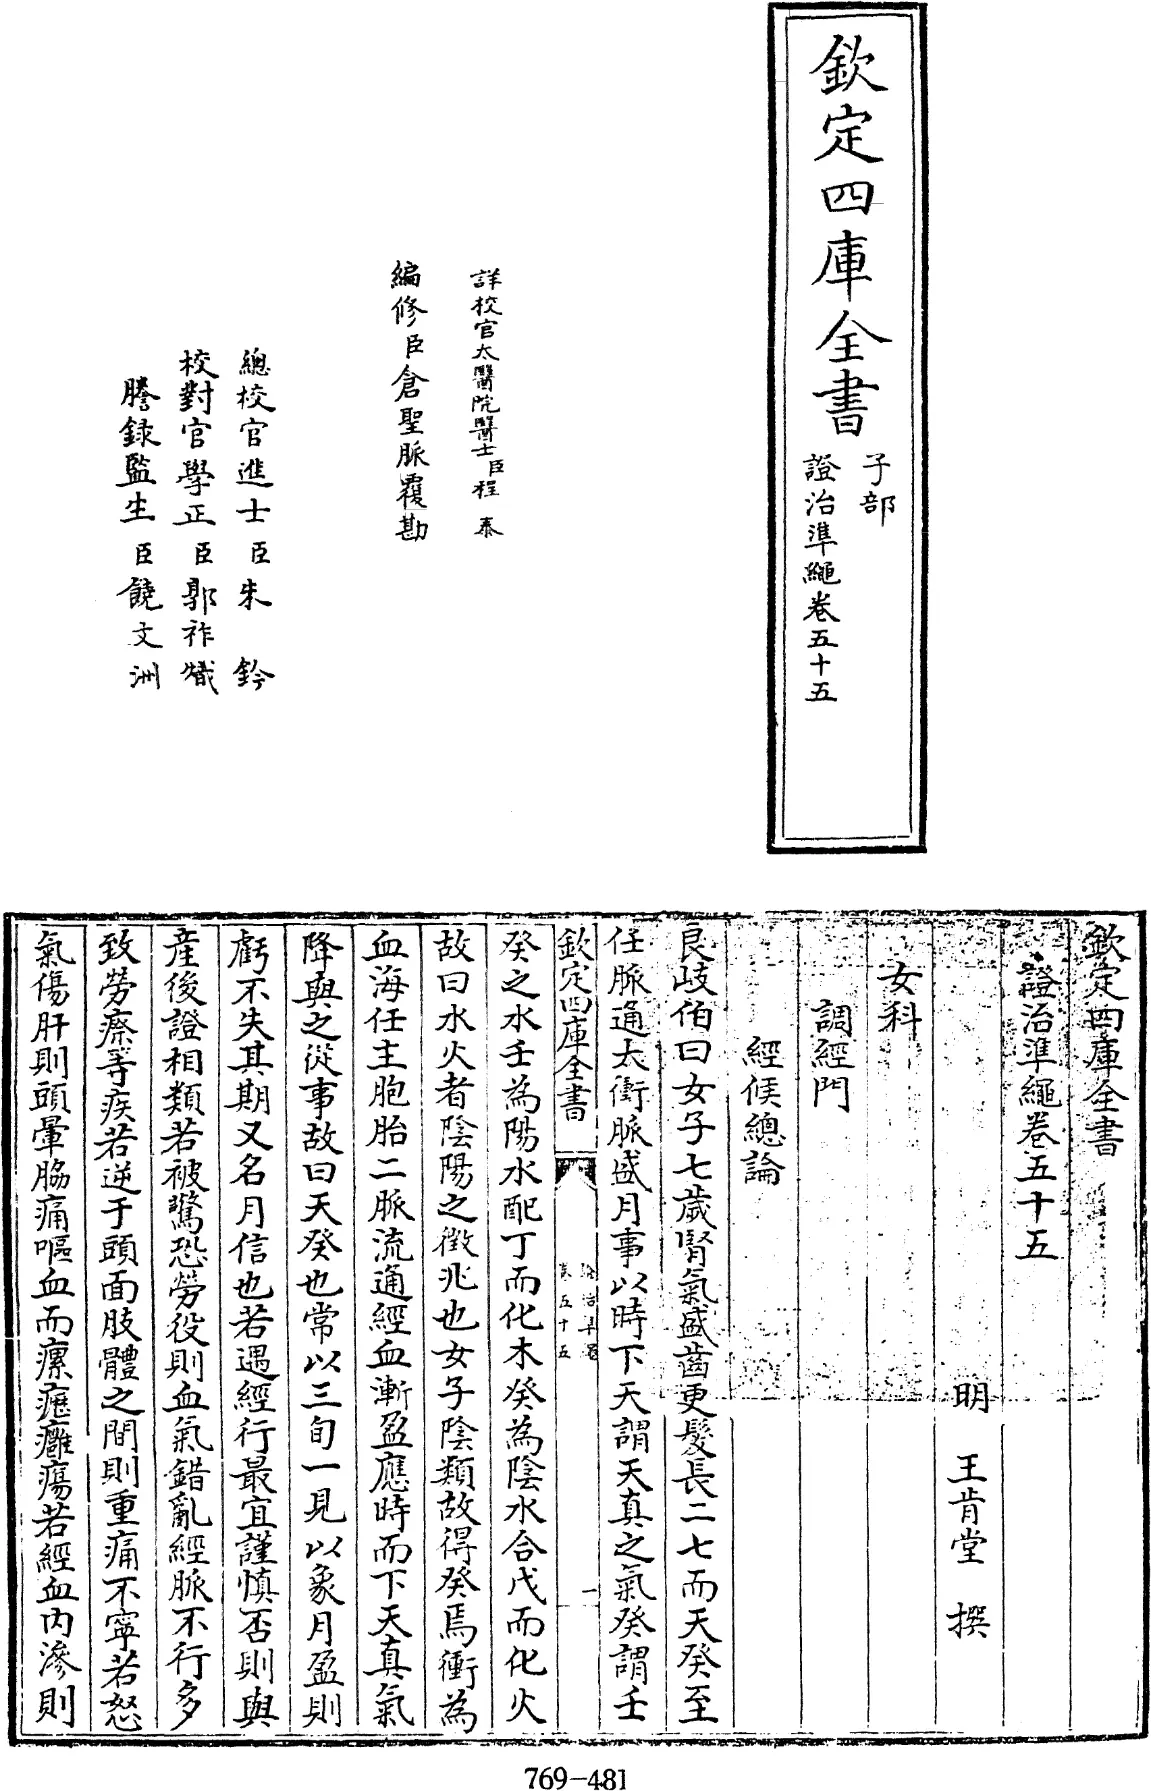 欽定四庫全書
子部
證治準繩卷五十五
詳校官太醫院醫士臣程泰
編修臣倉聖脈覆勘
總校官進士臣朱鈐
校對官學正臣郭祚熾
謄録監生臣饒文洲
欽定四庫全書
證治準繩卷五十五
明 王肯堂 撰
女科
調經門
經候總論
良岐伯曰女子七歲腎氣盛齒更髮長二七而天癸至
任脈通太衝脈盛月事以時下天謂天真之氣癸謂壬
欽定四庫全書
卷五十五
一
癸之水壬為陽水配丁而化木癸為陰水合戊而化火
故曰水火者陰陽之徵兆也女子陰類故得癸焉衝為
血海任主胞胎二脈流通經血漸盈應時而下天真氣
降與之從事故曰天癸也常以三旬一見以象月盈則
虧不失其期又名月信也若遇經行最宜謹慎否則與
產後證相類若被驚恐勞役則血氣錯亂經脈不行多
致勞瘵等疾若逆于頭面肢體之間則重痛不寧若怒
氣傷肝則頭暈脇痛嘔血而瘰癧癰瘍若經血内滲則
769-481